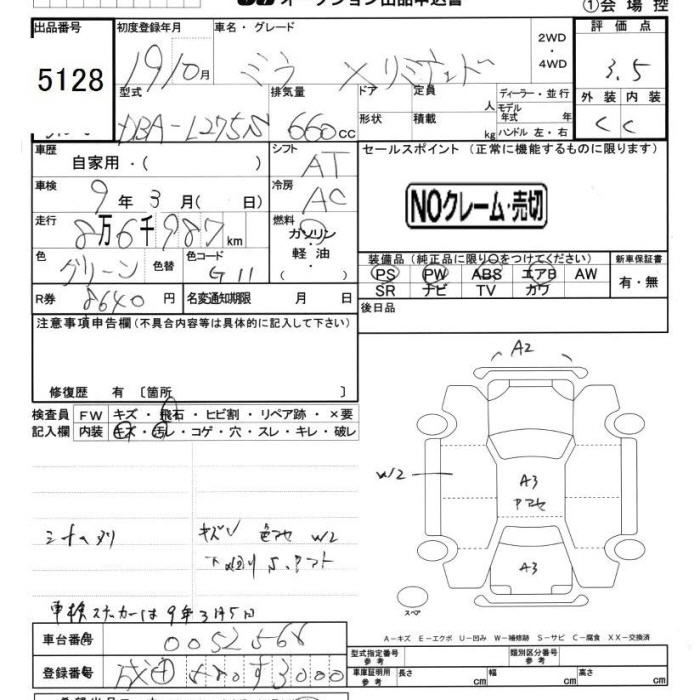 オークション出品申込書
①会場控
出品番号 初度登録年月 車名・グレード 2WD・4WD 評価点
5128 19 10月 ミラ Xリミテッド 3.5
型式 排気量 ドア 定員 人 ディーラー・並行 外装 内装
モデル年式 年
DBA-L275S 660cc 形状 積載 kg ハンドル 左・右 C C
車歴 自家用・( ) シフト AT セールスポイント (正常に機能するものに限ります)
車検 9年3月( 日) 冷房 AC
NOクレーム・売切
走行 8万6千987km 燃料 ガソリン・軽油・( )
色 グリーン 色替 色コード G11
装備品(純正品に限り○をつけてください) 新車保証書
PS PW ABS エアB AW 有・無
SR ナビ TV カワ
R券 8640円 名変通知期限 月 日 後日品
注意事項申告欄(不具合内容等は具体的に記入して下さい)
修復歴 有 〔箇所 〕
検査員 FW キズ・飛石・ヒビ割・リペア跡・×要
記入欄 内装 キズ・汚レ・コゲ・穴・スレ・キレ・破レ
A2
W2
A3
アセ
A3
スペア
キズV 色アセ W2
車検ステッカーは9年3月5日
A-キズ E-エクボ U-凹み W-補修跡 S-サビ C-腐食 XX-交換済
車台番号 0052566
型式指定番号 参考 類別区分番号 参考
登録番号 3000
車庫証明用 参考 長さ cm 幅 cm 高さ cm